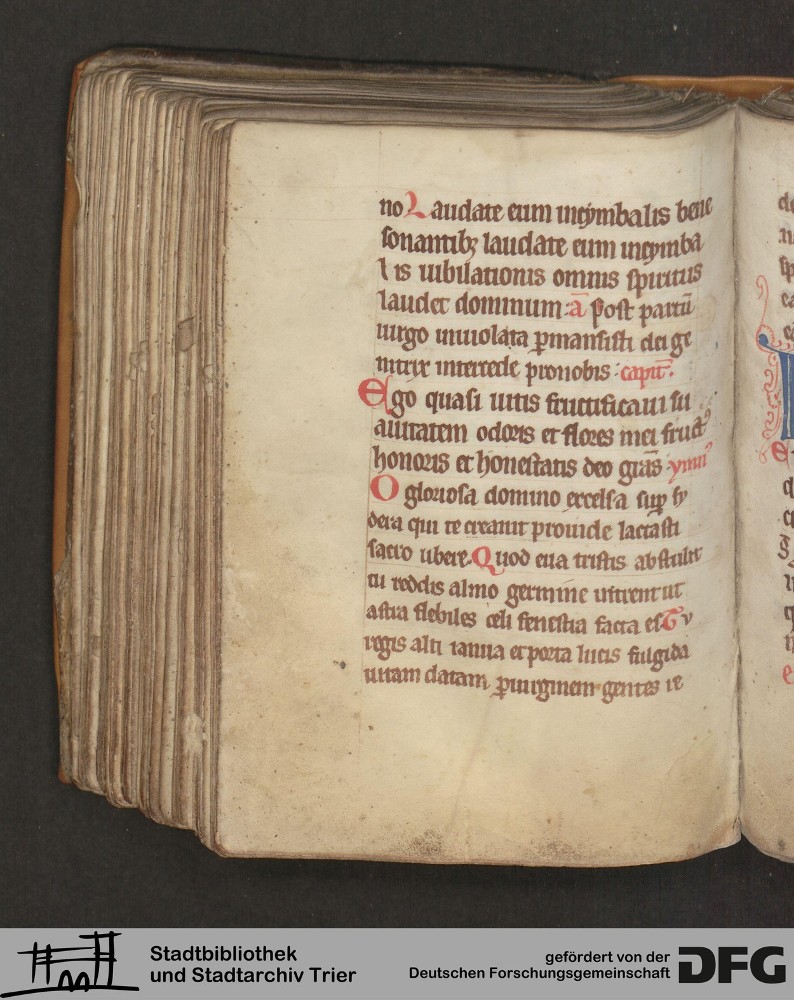 no Laudate eum incymbalis bene
sonantibꝫ laudate eum incymba
lis iubilationis omnis spiritus
laudet dominum. a̅ Post partū
uirgo inuiolata ꝑmansisti dei ge
nitrix intercede pronobis. capit̅.
Ego quasi uitis fructificaui su
auitatem odoris et flores mei fruct᾿
honoris et honestatis deo grās. ymn᾿
O gloriosa domino excelsa sup̱ sy
dera qui te creauit prouide lactasti
sacro ubere. Quod eua tristis abstulit
tu reddis almo germine intrent ut
astra flebiles celi fenestra facta es. Tu
regis alti ianua et porta lucis fulgida
uitam datam ꝑuirginem gentes re
Stadtbibliothek
und Stadtarchiv Trier
gefördert von der
Deutschen Forschungsgemeinschaft
DFG